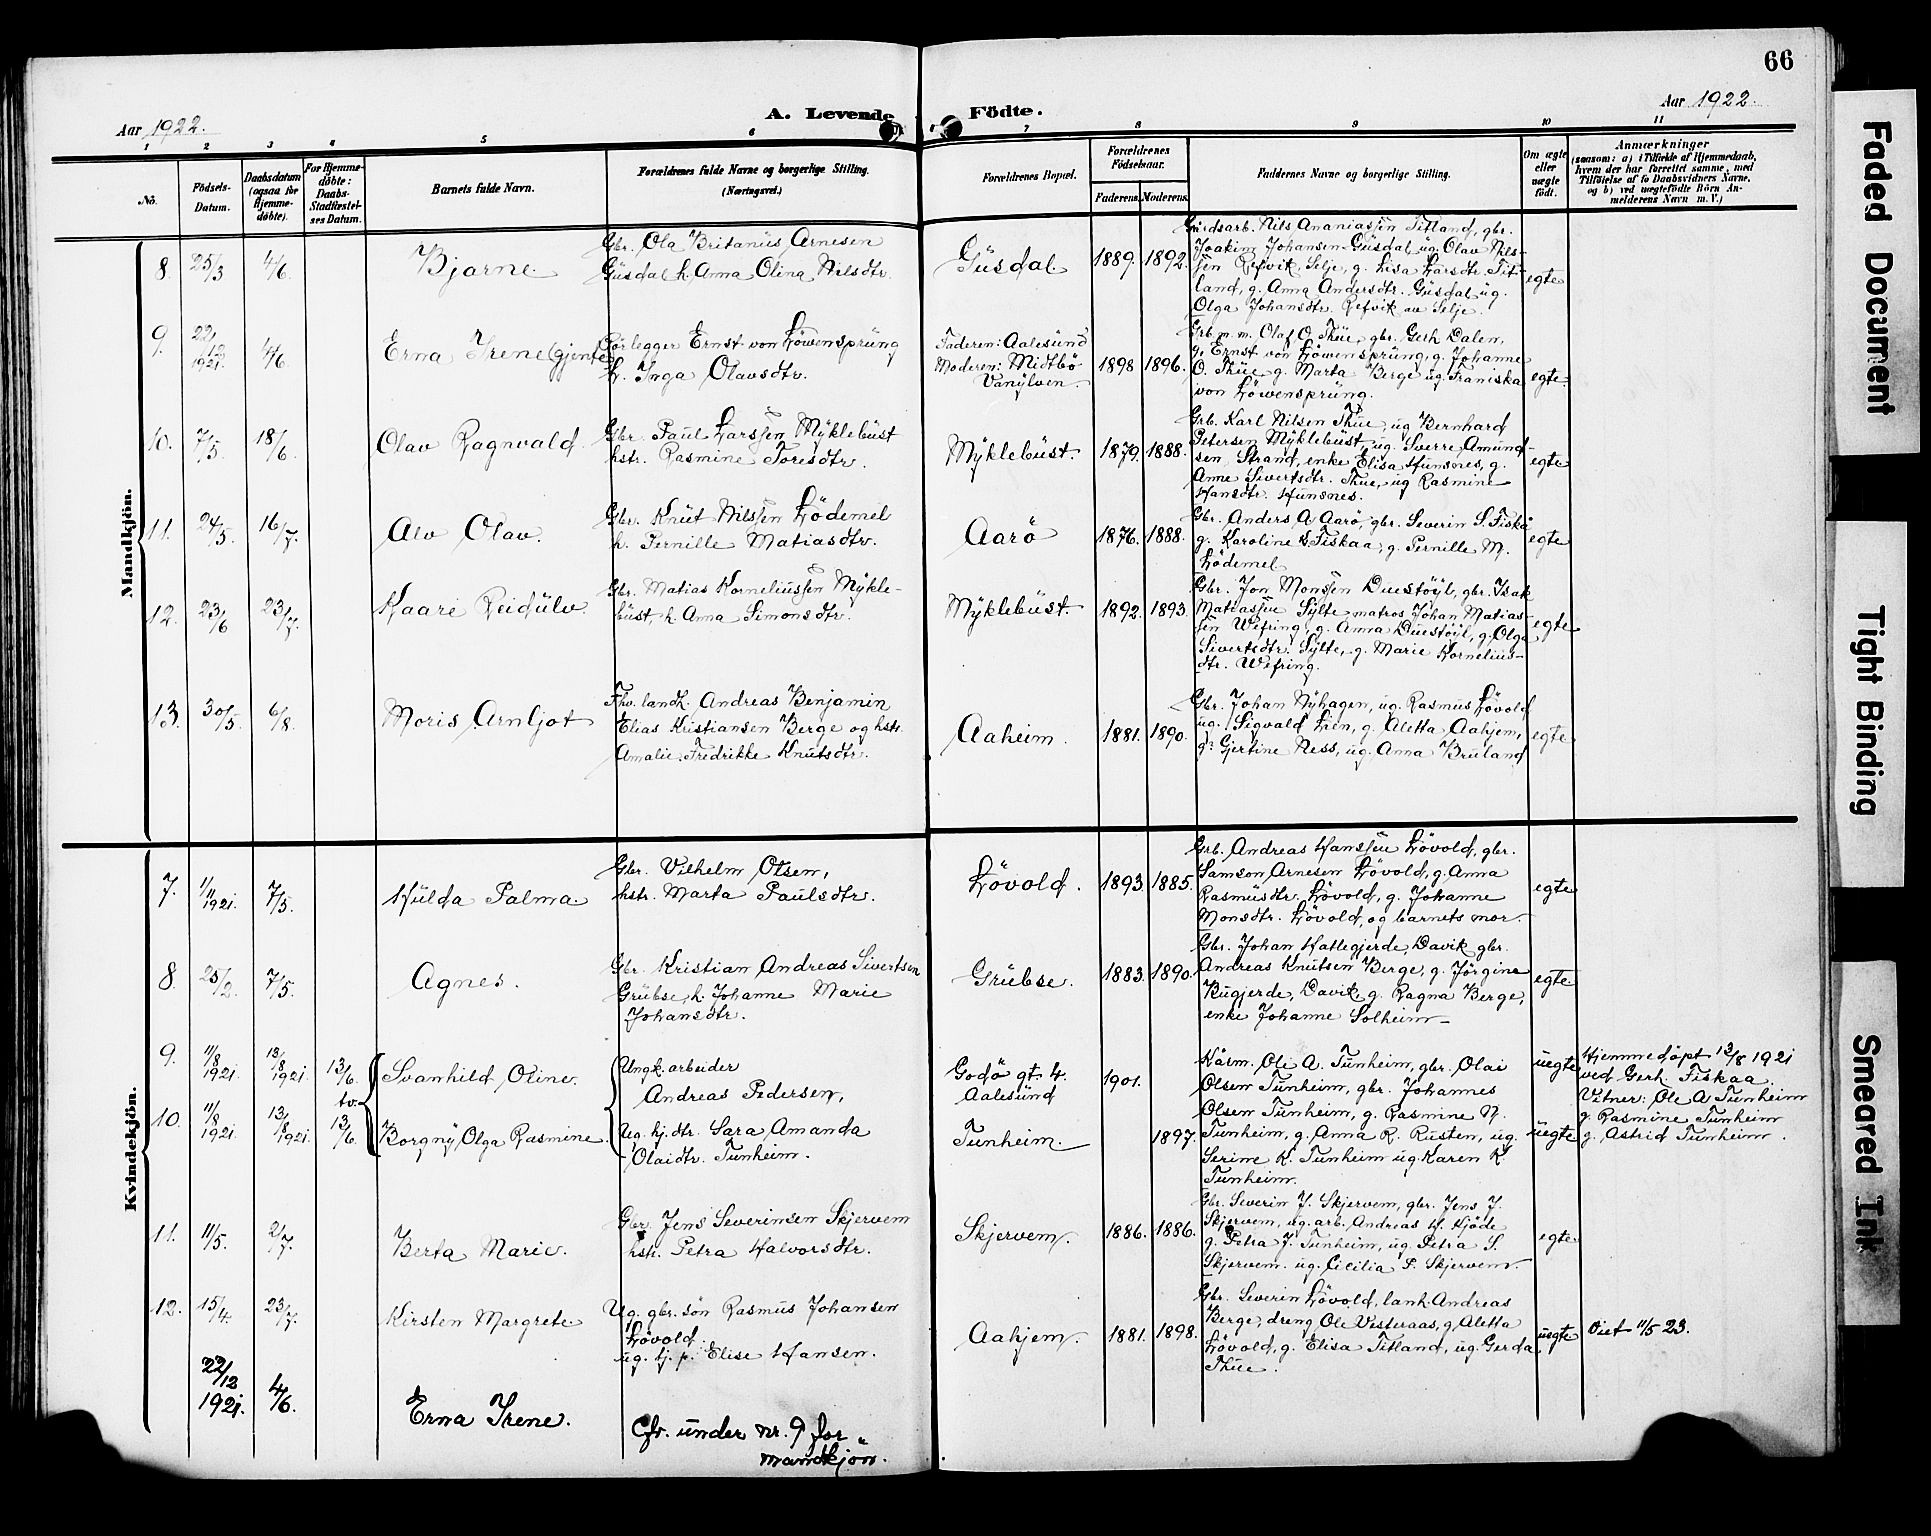 66
Aar 1922.
A. Levende Födte.
Aar 1922.
1 2 3 4 5 6 7 8 9 10 11
No.
Födsels-
Datum.
Daabsdatum
(ogsaa for
Hjemme-
döbte).
For Hjemme-
döbte:
Daabs-
Stadfæstel-
ses Datum.
Barnets fulde Navn.
Forældrenes fulde Navne og borgerlige Stilling.
(Næringsvei.)
Forældrenes Bopæl.
Forældrenes
Födselsaar.
Faderens. Moderens.
Faddernes Navne og borgerlige Stilling.
Om ægte
eller
uægte
födt.
Anmærkninger
(saasom: a) i Tilfælde af Hjemmedaab,
hvem der har forrettet samme, med
Tilföielse af to Daabsvidners Navne,
og b) ved uægtefödte Börn An-
melderens Navn m. V.)
Mandkjön.
8. 25/3 4/6. Bjarne
Gbr. Ola Britanius Arnesen
Gusdal h. Anna Olina Nilsdtr.
Gusdal 1889. 1892.
Gaardsarb. Nils Ananiassen Titland, gbr.
Joakim Johansen Gusdal, ug. Olav Nils-
sen Refvik, Selje, g. Lisa Larsdtr. Tit-
land, g. Anna Andersdtr. Gusdal ug.
Olga Johansdtr. Refvik av Selje.
egte
9. 22/12 1921. 4/6. Erna Irene (gjente)
Rörlegger Ernst von Löwensprung
h. Inga Olavsdtr.
Faderen: Aalesund
Moderen: Midtbö
Vanylven.
1898 1896.
Grb. m. m. Olaf O. Thue, gbr. Gerh. Dalen,
g. Ernst von Löwensprung, g. Johanne
O. Thue g. Marta Berge ug. Franiska
von Löwensprung.
egte.
10. 7/5. 18/6. Olav Ragnvald
Gbr. Paul Larssen Myklebust
hstr. Rasmine Toresdtr.
Myklebust. 1879. 1888.
Grb. Karl Nilsen Thue, ug Bernhard
Petersen Myklebust, ug. Sverre Amund-
sen Strand, enke Elisa Hunsnes, g.
Anne Sivertsdtr. Thue, ug Rasmine
Hansdtr. Hunsnes.
egte
11. 24/5. 16/7. Alv Olav.
Gbr. Knut Nilssen Lödemel
h. Pernille Matiasdtr.
Aarö 1876. 1888.
Gbr. Anders A Aarö, gbr. Severin S. Fiskå
g. Karoline S. Fiskaa, g. Pernille M.
Lödemel
egte
12. 23/6 23/7. Kaare Reidulv.
Gbr. Matias Korneliussen Mykle-
bust, h. Anna Simonsdtr.
Myklebust. 1892. 1893.
Gbr. Jon Monssen Duestöyl, gbr. Isak
Matiassen Sylte matros Johan Matias-
sen Wefring, g. Anna Duestöyl, g. Olga
Sivertsdtr. Sylte, g. Marie Kornelius-
dtr. Wefring.
egte
13. 30/5. 6/8. Moris Arnljot
Fhv. landh. Andreas Benjamin
Elias Kristiansen Berge og hstr.
Amalie Fredrikke Knutsdtr.
Aaheim. 1881. 1890.
Gbr. Johan Nyhagen, ug. Rasmus Lövold
ug. Sigvald Lien, g. Aletta Aahjem,
g. Gjertine Ness, ug. Anna Bruland
egte
Kvindekjön.
7. 1/11 1921. 7/5. Hulda Palma.
Gbr. Vilhelm Olsen,
hstr. Marta Paulsdtr.
Lövold. 1893. 1885.
Grb. Andreas Hanssen Lövold, gbr.
Samson Arnesen Lövold, g. Anna
Rasmusdtr. Lövold, g. Johanne
Monsdtr. Lövold, og barnets mor.
egte
8. 25/2. 7/5. Agnes.
Gbr. Kristian Andreas Sivertsen
Grubse, h. Johanne Marie
Johansdtr.
Grubse. 1883. 1890.
Gbr. Johan Hattegjerde, Davik gbr.
Andreas Knutsen Berge, g. Jörgine
Bugjerde, Davik, g. Ragna Berge,
enke Johanne Solheim
egte
9. 11/8 1921. 13/8 1921 13/6. Svanhild Oline.
tv.
10. 11/8 1921. 13/8 1921. 13/6. Borgny Olga Rasmine
Ungk. arbeider
Andreas Pedersen,
Ug. hj. dtr. Sara Amanda
Olaidtr. Tunheim.
Godö gt. 4.
Aalesund
Tunheim.
1901.
1897.
Kårm. Ole A. Tunheim, gbr. Olai
Olsen Tunheim, gbr. Johannes
Olsen Tunheim, g. Rasmine N.
Tunheim, g. Anna R. Rusten, ug.
Serine K. Tunheim ug. Karen K.
Tunheim.
uegte
uegte
Hjemmedöpt 13/8 1921
ved Gerh. Fiskaa.
Vitner: Ole A Tunheim
g. Rasmine Tunheim
g. Astrid Tunheim.
11. 11/5. 2/7. Berta Marie.
Gbr. Jens Severinsen Skjervem
hstr. Petra Halvorsdtr.
Skjervem. 1886. 1886.
Gbr. Severin J. Skjervem, gbr. Jens J.
Skjervem, ug. arb. Andreas H. Hjöde
g. Petra J. Tunheim, ug. Petra S.
Skjervem. ug. Cicilia P. Skjervem.
egte
12. 15/4. 23/7. Kirsten Margrete
Ug. gbr. sön Rasmus Johansen
Lövold
ug. tj. p. Elise Hansen.
Aahjem. 1881. 1898.
Gbr. Severin Lövold, lanh. Andreas
Berge, dreng Ole Vesteraas, g. Aletta
Lövold, g. Elisa Titland, ug. Gerda
Thue.
uegte Viet 11/5 23.
22/12 1921. 4/6. Erna Irene.
Cfr. under nr. 9 for
mandkjön.
Faded Document
Tight Binding
Smeared Ink